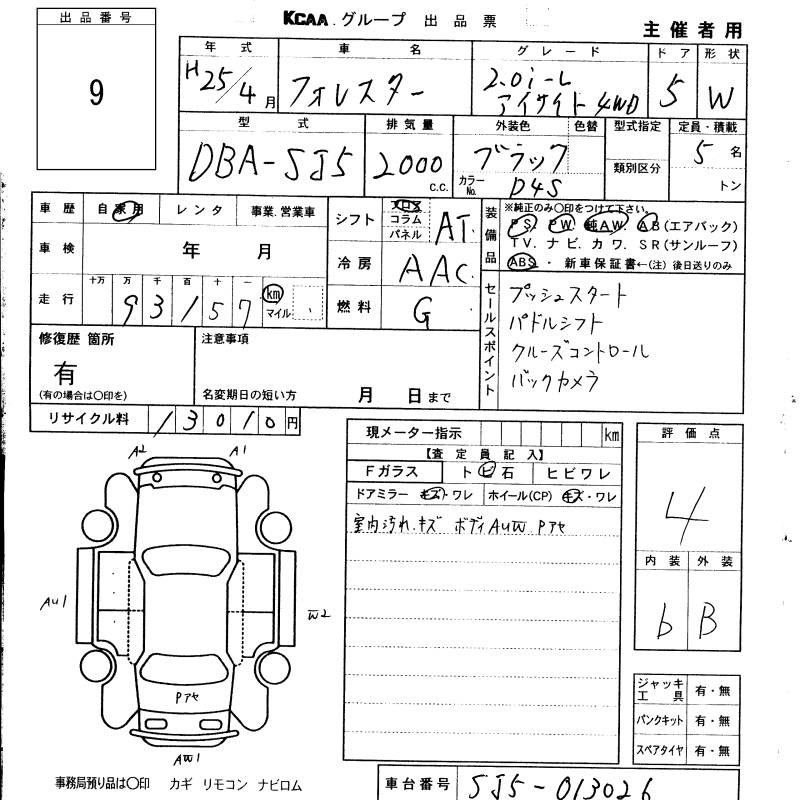 出品番号
9
KCAA グループ 出品票
主催者用
年式 車名 グレード ドア 形状
H25/4月 フォレスター 2.0i-L アイサイト 4WD 5 W
型式 排気量 外装色 色替 型式指定 定員・積載
DBA-SJ5 2000 c.c. ブラック 類別区分 5名
カラーNo. D4S トン
車歴 自家用 レンタ 事業.営業車
車検 年 月
走行 十万 万 千 百 十 一
93157 km マイル
シフト フロア コラム パネル AT
冷房 AAC
燃料 G
装備品 ※純正のみ○印をつけて下さい。
PS. PW. 純AW. AB(エアバック)
TV. ナビ. カワ. SR(サンルーフ)
ABS・新車保証書←(注) 後日送りのみ
セールスポイント
プッシュスタート
パドルシフト
クルーズコントロール
バックカメラ
修復歴 箇所
有
(有の場合は○印を)
注意事項
名変期日の短い方 月 日まで
リサイクル料 13010円
現メーター指示 km
【査定員記入】
Fガラス ト ビ 石 ヒビワレ
ドアミラー キズ・ワレ ホイール(CP) キズ・ワレ
室内汚れ.キズ ボディAUW Pアセ
評価点
4
内装 外装
b B
ジャッキ工具 有・無
パンクキット 有・無
スペアタイヤ 有・無
A2 A1
AU1 W2
Pアセ
AW1
事務局預り品は○印 カギ リモコン ナビロム
車台番号 SJ5-013026